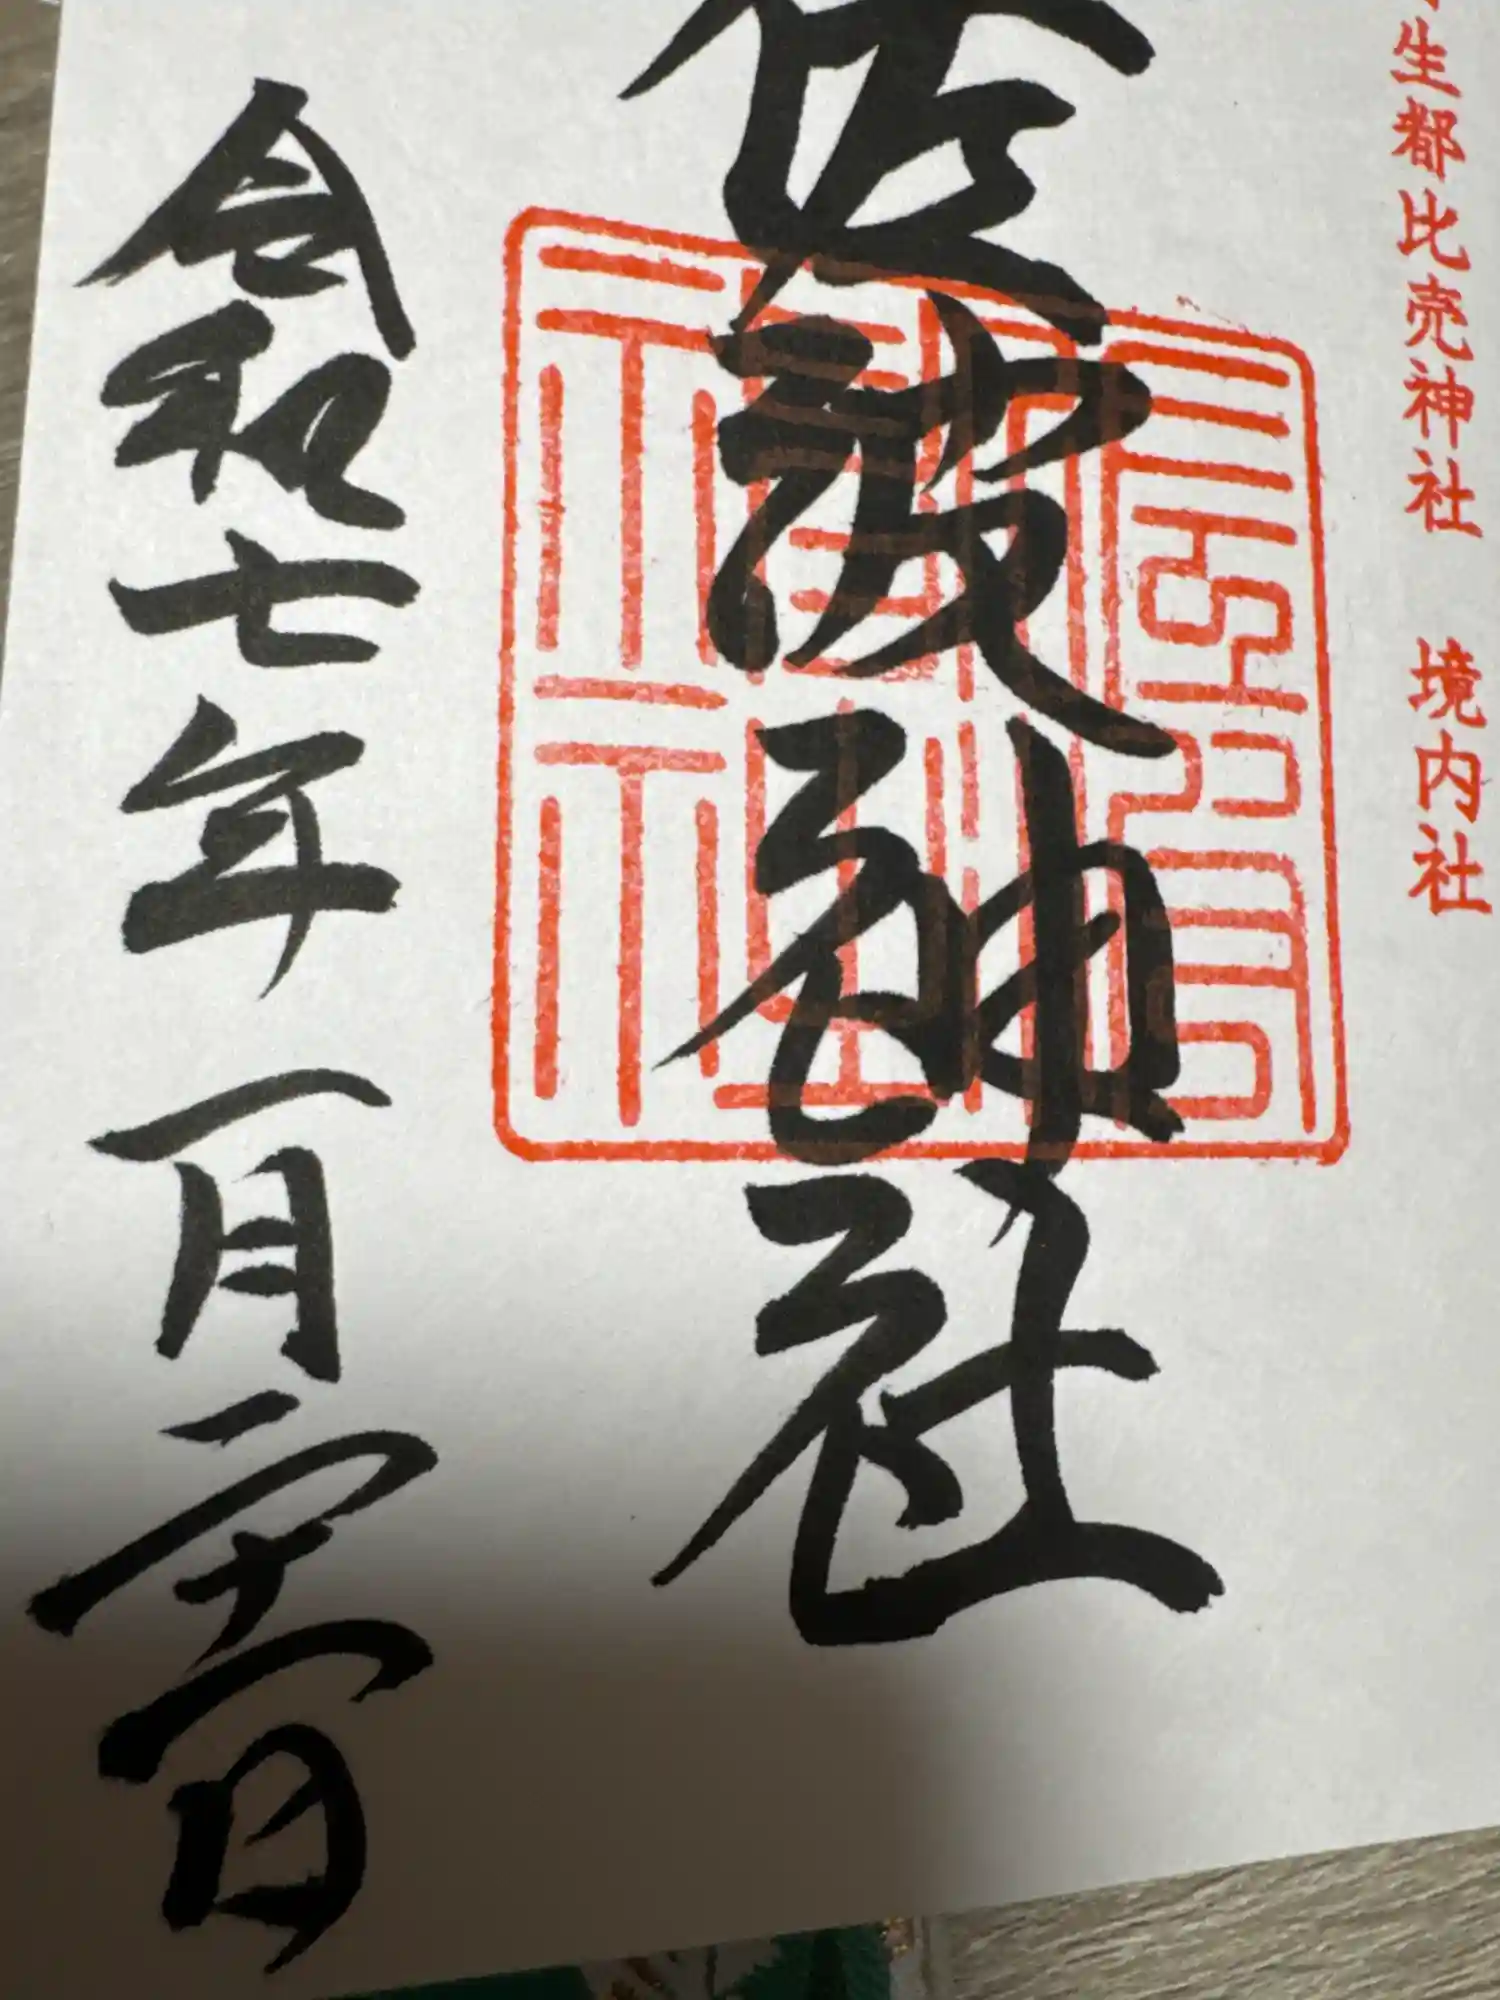 生都比売神社 境内社
佐波神社
令和七年一月